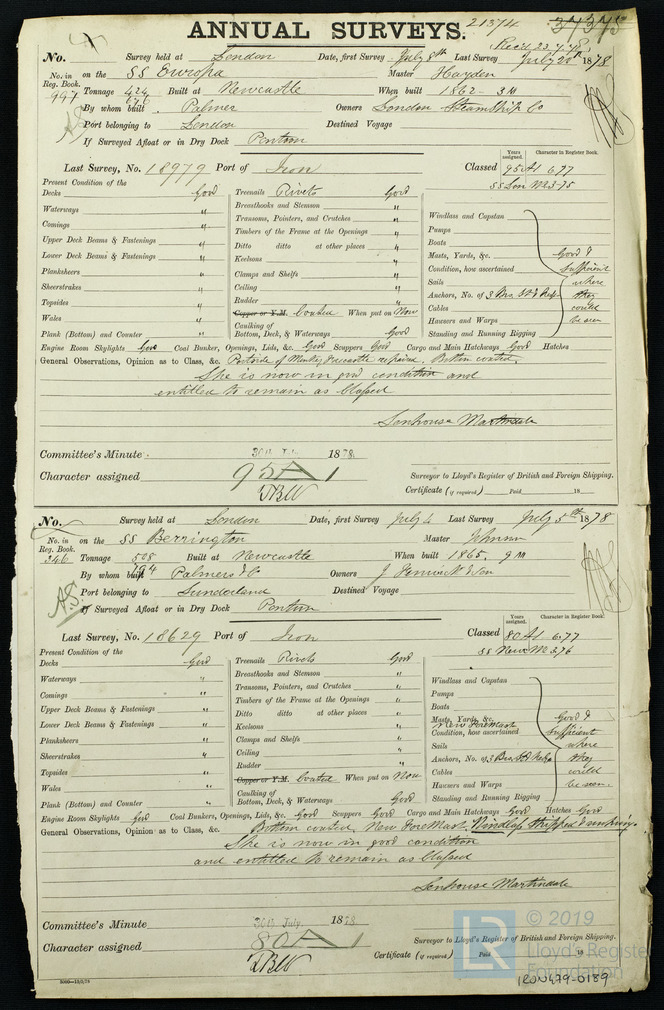 ANNUAL SURVEYS. 21374
Recd 23.7.78
No. Survey held at London Date, first Survey July 8th Last Survey July 20th 1878
No. in Reg. Book. on the SS Europa Master Hayden
997 Tonnage 424 Built at Newcastle When built 1862 - 3M
676
By whom built Palmer Owners London Steamship Co
Port belonging to London Destined Voyage
If Surveyed Afloat or in Dry Dock Pontoon
Years assigned. Character in Register Book.
Last Survey, No. 18979 Port of Iron Classed 95 A1 6.77
SS Lon No 3-75
Present Condition of the
Decks Good Treenails Rivets Good
Waterways " Breasthooks and Stemson "
Comings " Transoms, Pointers, and Crutches " Windlass and Capstan
Upper Deck Beams & Fastenings " Timbers of the Frame at the Openings " Pumps
Lower Deck Beams & Fastenings " Ditto ditto at other places " Boats
Planksheers " Keelsons " Masts, Yards, &c. Good &
Sheerstrakes " Clamps and Shelfs " Condition, how ascertained sufficient
Topsides " Ceiling " Sails where
Wales " Rudder " Anchors, No. of 3 they
Copper or Y.M. Coated When put on Now Cables could
Plank (Bottom) and Counter " Caulking of Bottom, Deck, & Waterways Good Hawsers and Warps be seen
Standing and Running Rigging
Engine Room Skylights Good Coal Bunker, Openings, Lids, &c. Good Scuppers Good Cargo and Main Hatchways Good Hatches
General Observations, Opinion as to Class, &c. Portside of repaired, Bottom coated,
She is now in good condition and
entitled to remain as Classed
Senhouse Martindale
Committee's Minute 30th July 1878
Character assigned 95A1 Surveyor to Lloyd's Register of British and Foreign Shipping.
Certificate (if required) Paid 18
No. Survey held at London Date, first Survey July 4 Last Survey July 5th 1878
No. in Reg. Book. on the SS Berrington Master Johnson
346 Tonnage 508 Built at Newcastle When built 1865, 9M
By whom built Palmers & Co Owners J Fenwick & Son
Port belonging to Sunderland Destined Voyage
A.S. If Surveyed Afloat or in Dry Dock Pontoon
Years assigned. Character in Register Book.
Last Survey, No. 18629 Port of Iron Classed 80 A1 6.77
SS Newc No 3.76
Present Condition of the
Decks Good Treenails Rivets Good
Waterways " Breasthooks and Stemson " Windlass and Capstan
Comings " Transoms, Pointers, and Crutches " Pumps
Upper Deck Beams & Fastenings " Timbers of the Frame at the Openings " Boats
Lower Deck Beams & Fastenings " Ditto ditto at other places " Masts, Yards, &c. Good &
New Foremast
Planksheers " Keelsons " Condition, how ascertained sufficient
Sheerstrakes " Clamps and Shelfs " Sails where
Topsides " Ceiling " Anchors, No. of 3 they
Wales " Rudder " Cables could
Copper or Y.M. Coated When put on Now Hawsers and Warps be seen.
Plank (Bottom) and Counter " Caulking of Bottom, Deck, & Waterways Good Standing and Running Rigging
Engine Room Skylights Good Coal Bunkers, Openings, Lids, &c. Good Scuppers Good Cargo and Main Hatchways Good Hatches Good
General Observations, Opinion as to Class, &c. Bottom coated, New Foremast. Windlass stripped &
She is now in good condition
and entitled to remain as Classed
Senhouse Martindale
Committee's Minute 30th July. 1878
Character assigned 80A1 Surveyor to Lloyd's Register of British and Foreign Shipping.
Certificate (if required) Paid 18
LR © 2019 Lloyd's Register Foundation
LRF-